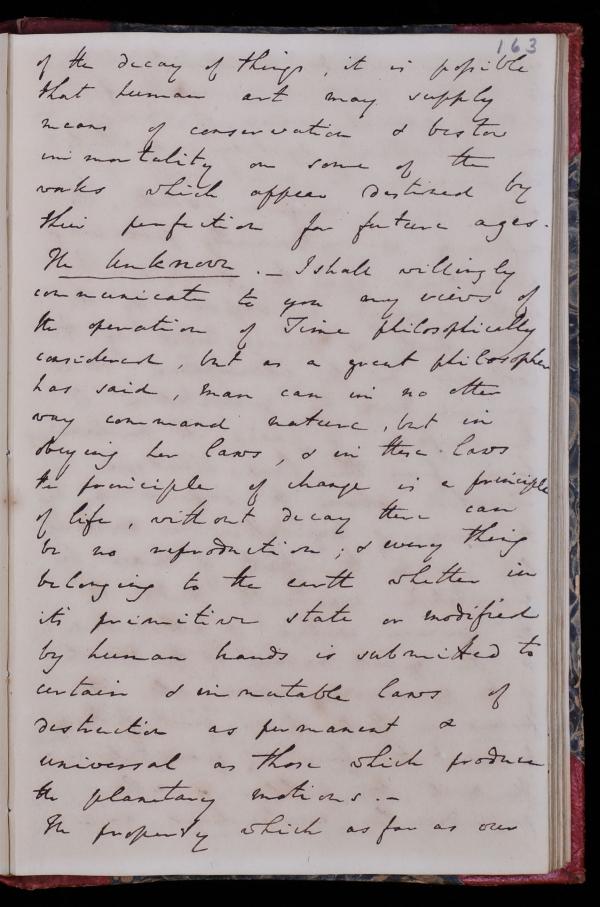 163
of the decay of things, it is possible
that human art may supply
means of conservation & bestow
immortality on some of the
works which appear destined by
their perfection for future ages.
The Unknown. – I shall willingly
communicate to you my views of
the operation of Time philosophically
considered, but as a great philosopher
has said, man can in no other
way command nature, but in
obeying her laws, & in these laws
the principle of change is a principle
of life, without decay there can
be no reproduction; & every thing
belonging to the earth whether in
its primitive state or modified
by human hands is submitted to
certain & immutable laws of
destruction as permanent &
universal as those which produce
the planetary motions. –
The property which as far as our